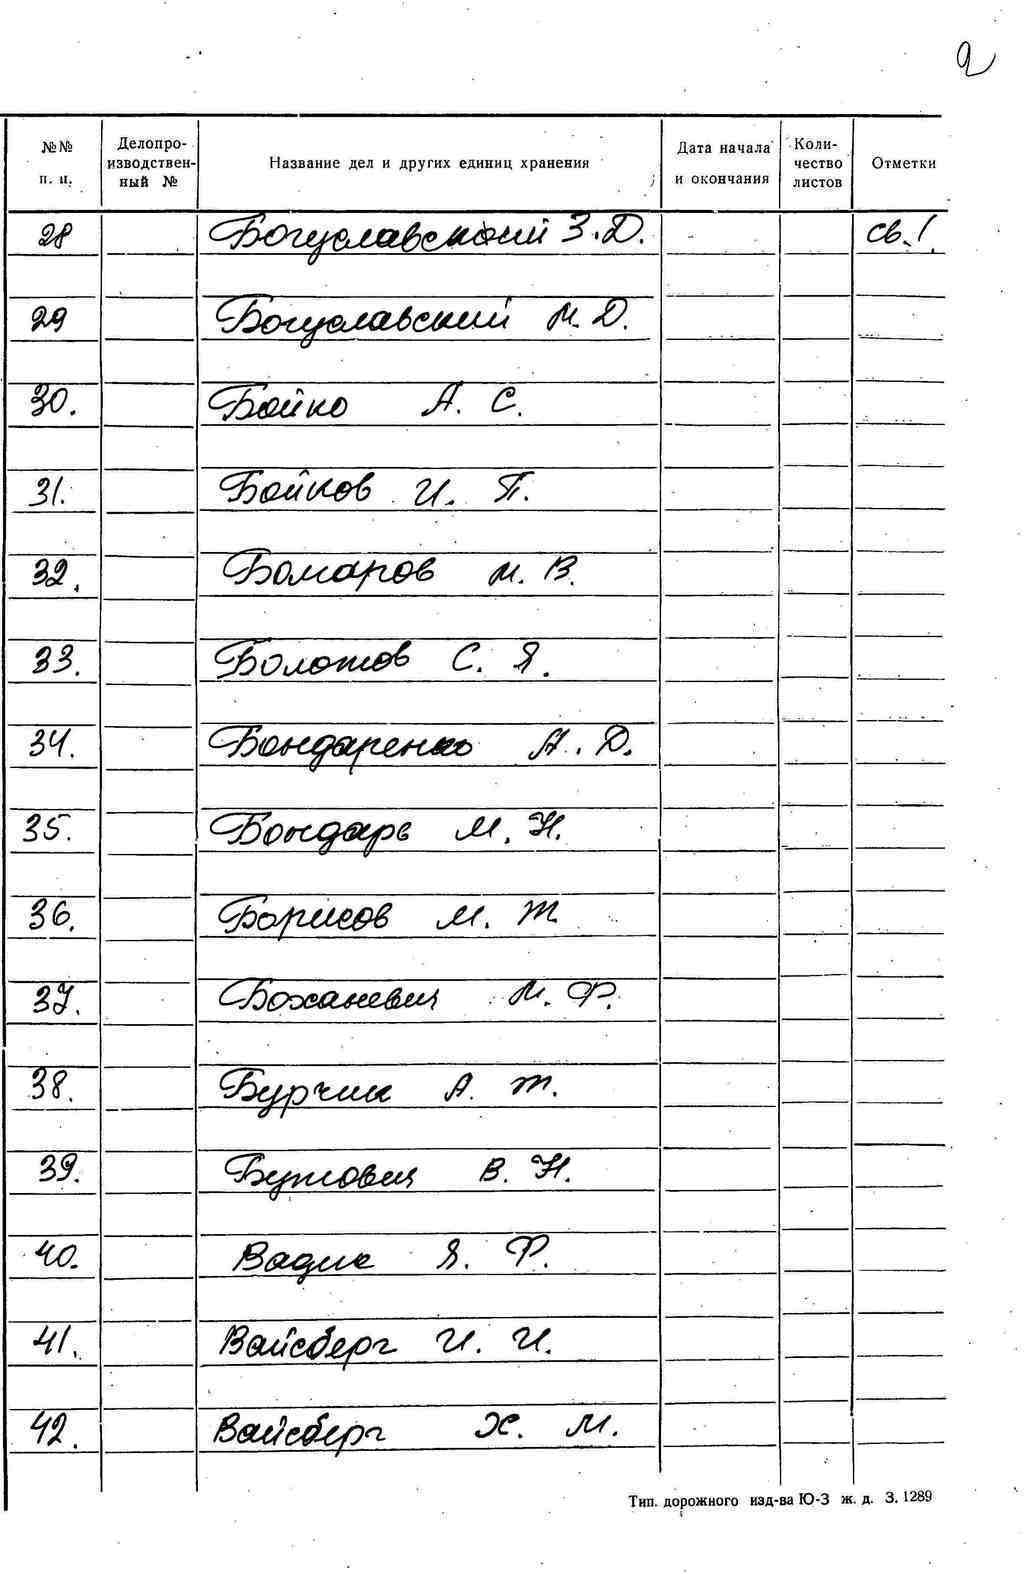 2
№№ п. п. Делопроизводственный № Название дел и других единиц хранения Дата начала и окончания Количество листов Отметки
28 Богуславский З. Д. св. 1
29 Богуславский М. Д.
30. Бойко А. С.
31. Бойков И. П.
32. Бомаров М. В.
33. Болотов С. Я.
34. Бондаренко А. Д.
35. Бондарь М. Н.
36. Борисов М. Т.
37. Боханевич М. Ф.
38. Бурчик А. Т.
39. Бутович В. Н.
40. Вадис Я. Ф.
41. Вайсберг И. И.
42. Вайсберг Х. М.
Тип. дорожного изд-ва Ю-З ж. д. З. 1289